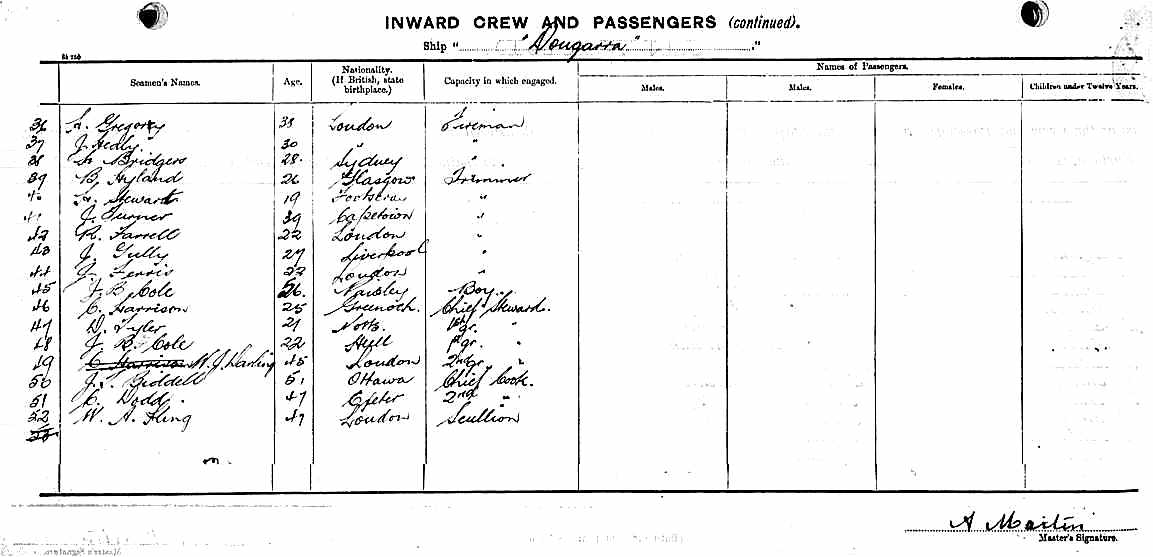 INWARD CREW AND PASSENGERS (continued).
Ship "Dougarra"
Seamen's Names. Age. Nationality. (If British, state birthplace.) Capacity in which engaged. Names of Passengers.
Males. Males. Females. Children under Twelve Years.
36 H. Gregory 38 London Fireman
37 J. Hedly 30 " "
38 Bridgers 28. Sydney "
39 B. Hyland 26 Glasgow Trimmer
40 H. Stewart 19 Footscray "
41 J. Turner 39 Capetown "
42 R. Farrell 22 London "
43 J. Gully 27 Liverpool "
44 J. Ferris 22 London "
45 J B Cole 26. Paisley Boy
46 C. Harrison 25 Greenock Chief Steward.
47 D. Tyler 21 Notts. 1st gr. "
48 J. B. Cole 22 Hull 1st gr. "
49 C Harrison W. J. Darling 45 London 2nd gr. "
50 J. Riddell 51 Ottawa Chief Cook.
51 C. Dodd. 47 Exeter 2nd "
52 W. A. Kling 47 London Scullion
53
A Martin
Master's Signature.